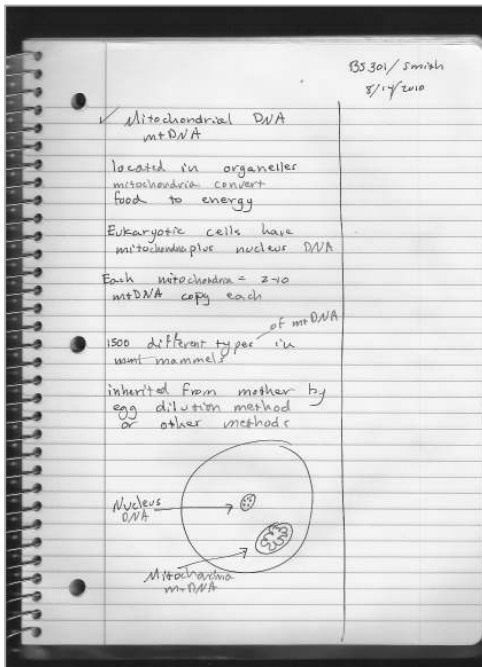 BS301/Smith
8/14/2010
✓ Mitochondrial DNA
mtDNA
located in organelles
mitochondria convert
food to energy
Eukaryotic cells have
mitochondria plus nucleus DNA
Each mitochondria = 2-10
mtDNA copy each
of mtDNA
1500 different types in
mammels
inherited from mother by
egg dilution method
or other methods
Nucleus
DNA
Mitochondria
mtDNA